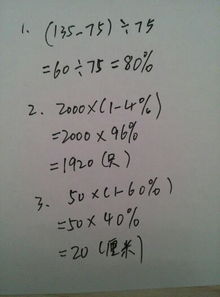 1. (135-75)÷75
=60÷75=80%
2. 2000×(1-4%)
=2000×96%
=1920(只)
3. 50×(1-60%)
=50×40%
=20(厘米)